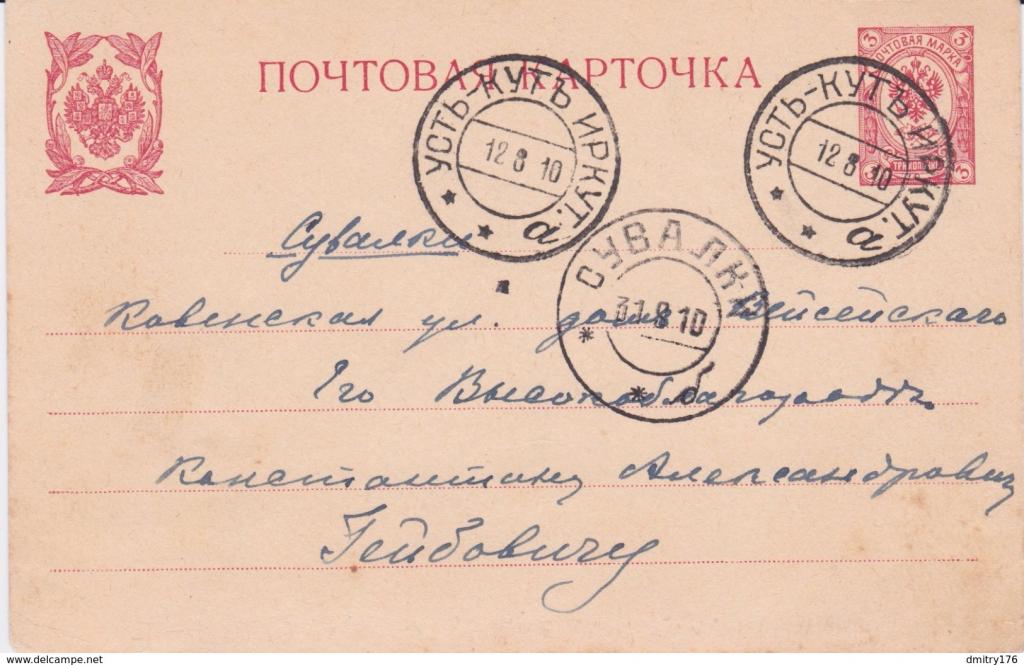 ПОЧТОВАЯ КАРТОЧКА
3 ПОЧТОВАЯ МАРКА 3
3 ТРИ КОП. 3
УСТЬ-КУТЪ ИРКУТ.
12 8 10
а
УСТЬ-КУТЪ ИРКУТ.
12 8 10
а
СУВАЛКИ
31 8 10
б
Сувалки
Ковенская ул. домъ
Его Высокоблагородiю
Константину Александровичу
Гейбовичу
www.delcampe.net
dmitry176